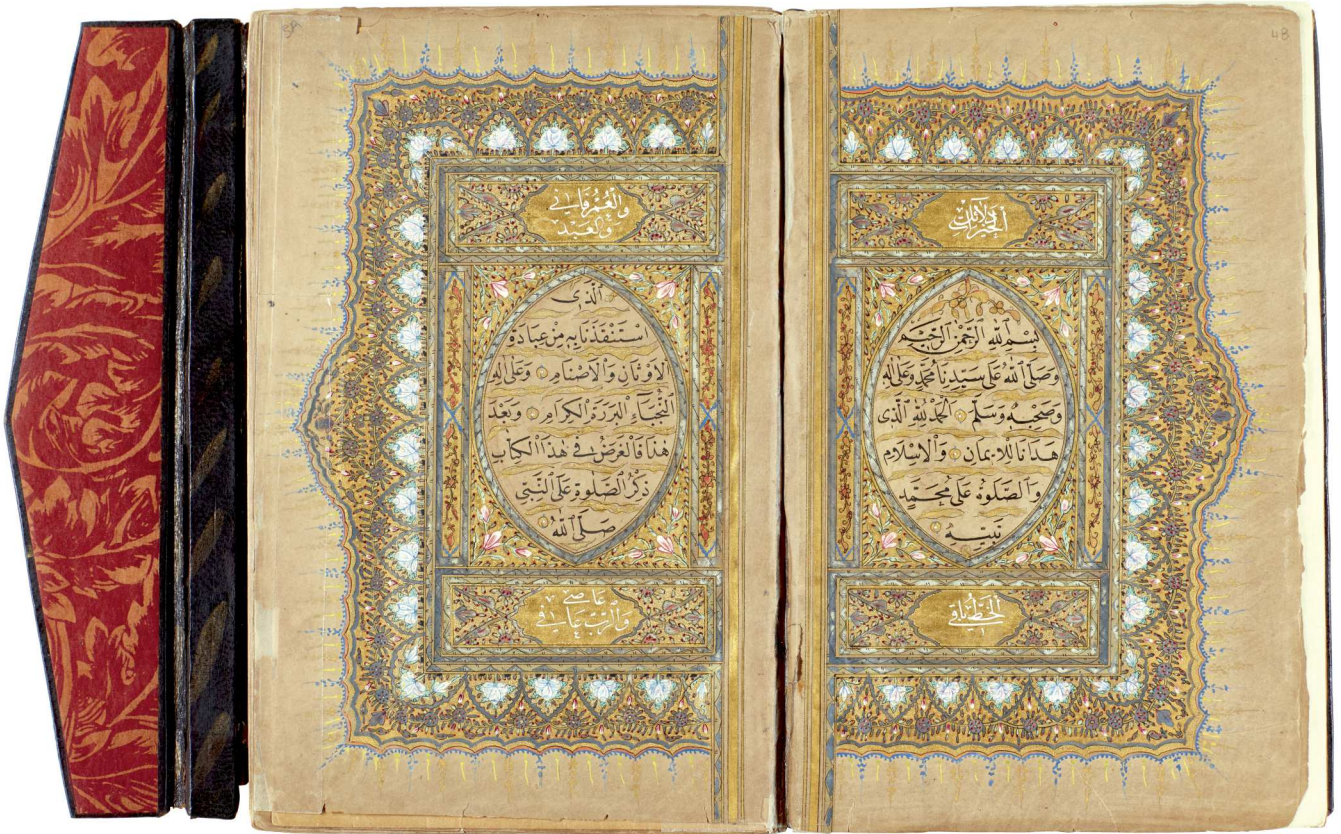 دَلَائِلُ
الْخَيْرَاتِ
بِسْمِ اللهِ الرَّحْمٰنِ الرَّحِيمِ
وَصَلَّى اللهُ عَلَى سَيِّدِنَا مُحَمَّدٍ وَعَلَى اٰلِهِ
وَصَحْبِهِ وَسَلَّمَ اَلْحَمْدُ لِلّٰهِ الَّذِى
هَدَانَا لِلْاِيمَانِ وَالْاِسْلَامِ
وَالصَّلٰوةُ عَلَى مُحَمَّدٍ
نَبِيِّهِ
اَلْخَطُّ بَاقِي
وَالْعُمْرُ فَانِي
وَالْعَبْدُ
اَلَّذِى
اسْتَنْقَذَنَا بِهِ مِنْ عِبَادَةِ
الْاَوْثَانِ وَالْاَصْنَامِ وَعَلَى اٰلِهِ
النُّجَبَاءِ الْبَرَرَةِ الْكِرَامِ وَبَعْدَ
هٰذَا فَالْغَرَضُ فِى هٰذَا الْكِتَابِ
ذِكْرُ الصَّلٰوةِ عَلَى النَّبِىِّ
صَلَّى اللهُ
عَاصِي
وَالرَّبُّ عَافِي
48